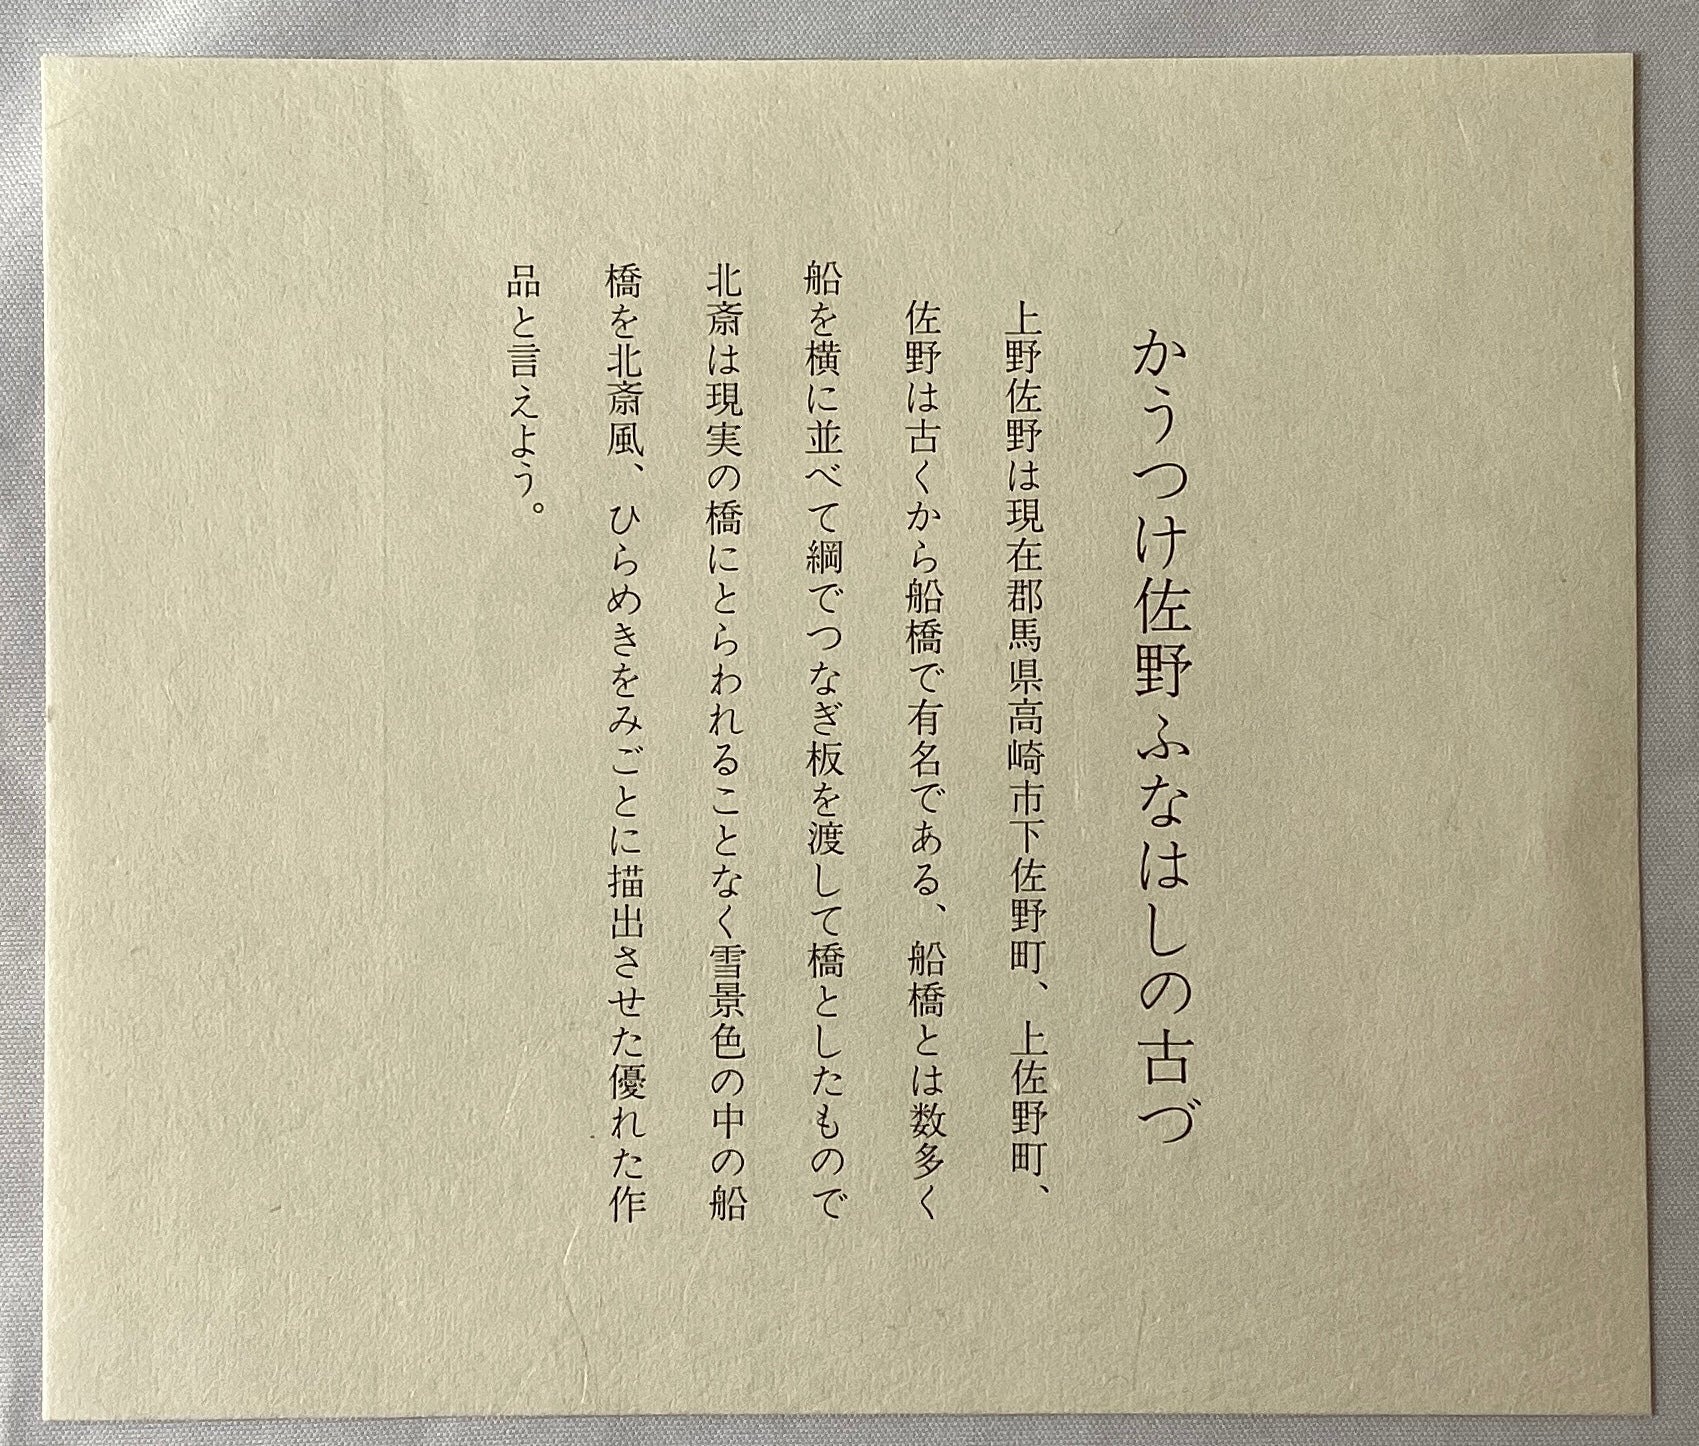 かうつけ佐野ふなはしの古づ
上野佐野は現在郡馬県高崎市下佐野町、上佐野町、
佐野は古くから船橋で有名である、船橋とは数多く
船を横に並べて綱でつなぎ板を渡して橋としたもので
北斎は現実の橋にとらわれることなく雪景色の中の船
橋を北斎風、ひらめきをみごとに描出させた優れた作
品と言えよう。